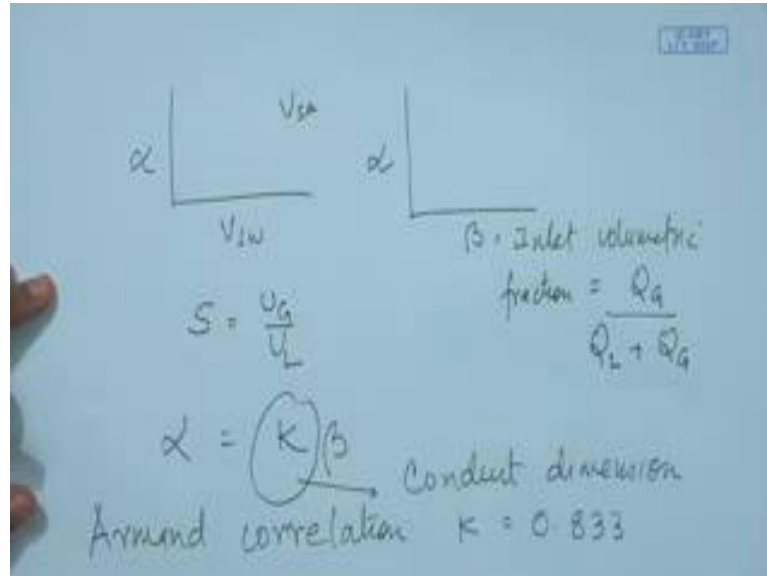 α
V_SA
V_SW
α
β = Inlet volumetric
fraction = Q_G / (Q_L + Q_G)
S = U_G / U_L
α = K β
Conduct dimension
Armand correlation K = 0.833